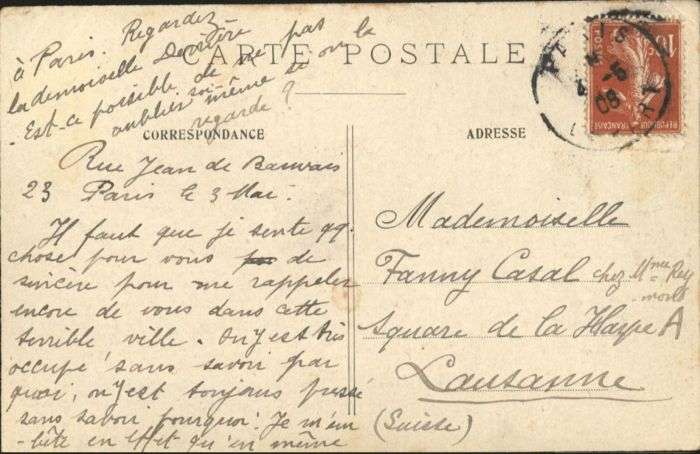 à Paris. Regardez
la demoiselle Derrière
Est-ce possible de ne pas
oublier soi-même si on la
regarde?
CARTE POSTALE
CORRESPONDANCE
ADRESSE
Rue Jean de Bauvais
23 Paris le 3 Mai.
Il faut que je sente qq.
chose pour vous de
sincère pour me rappeler
encore de vous dans cette
terrible ville. On y est très
occupé sans savoir par
quoi, on y est toujours pressé
sans savoir pourquoi! Je m'em
-bête en effet qu'en même
Mademoiselle
Fanny Casal chez Mme Rey
Square de la Harpe A
Lausanne
(Suisse)
PARIS
08
10
POSTES
REPUBLIQUE FRANÇAISE